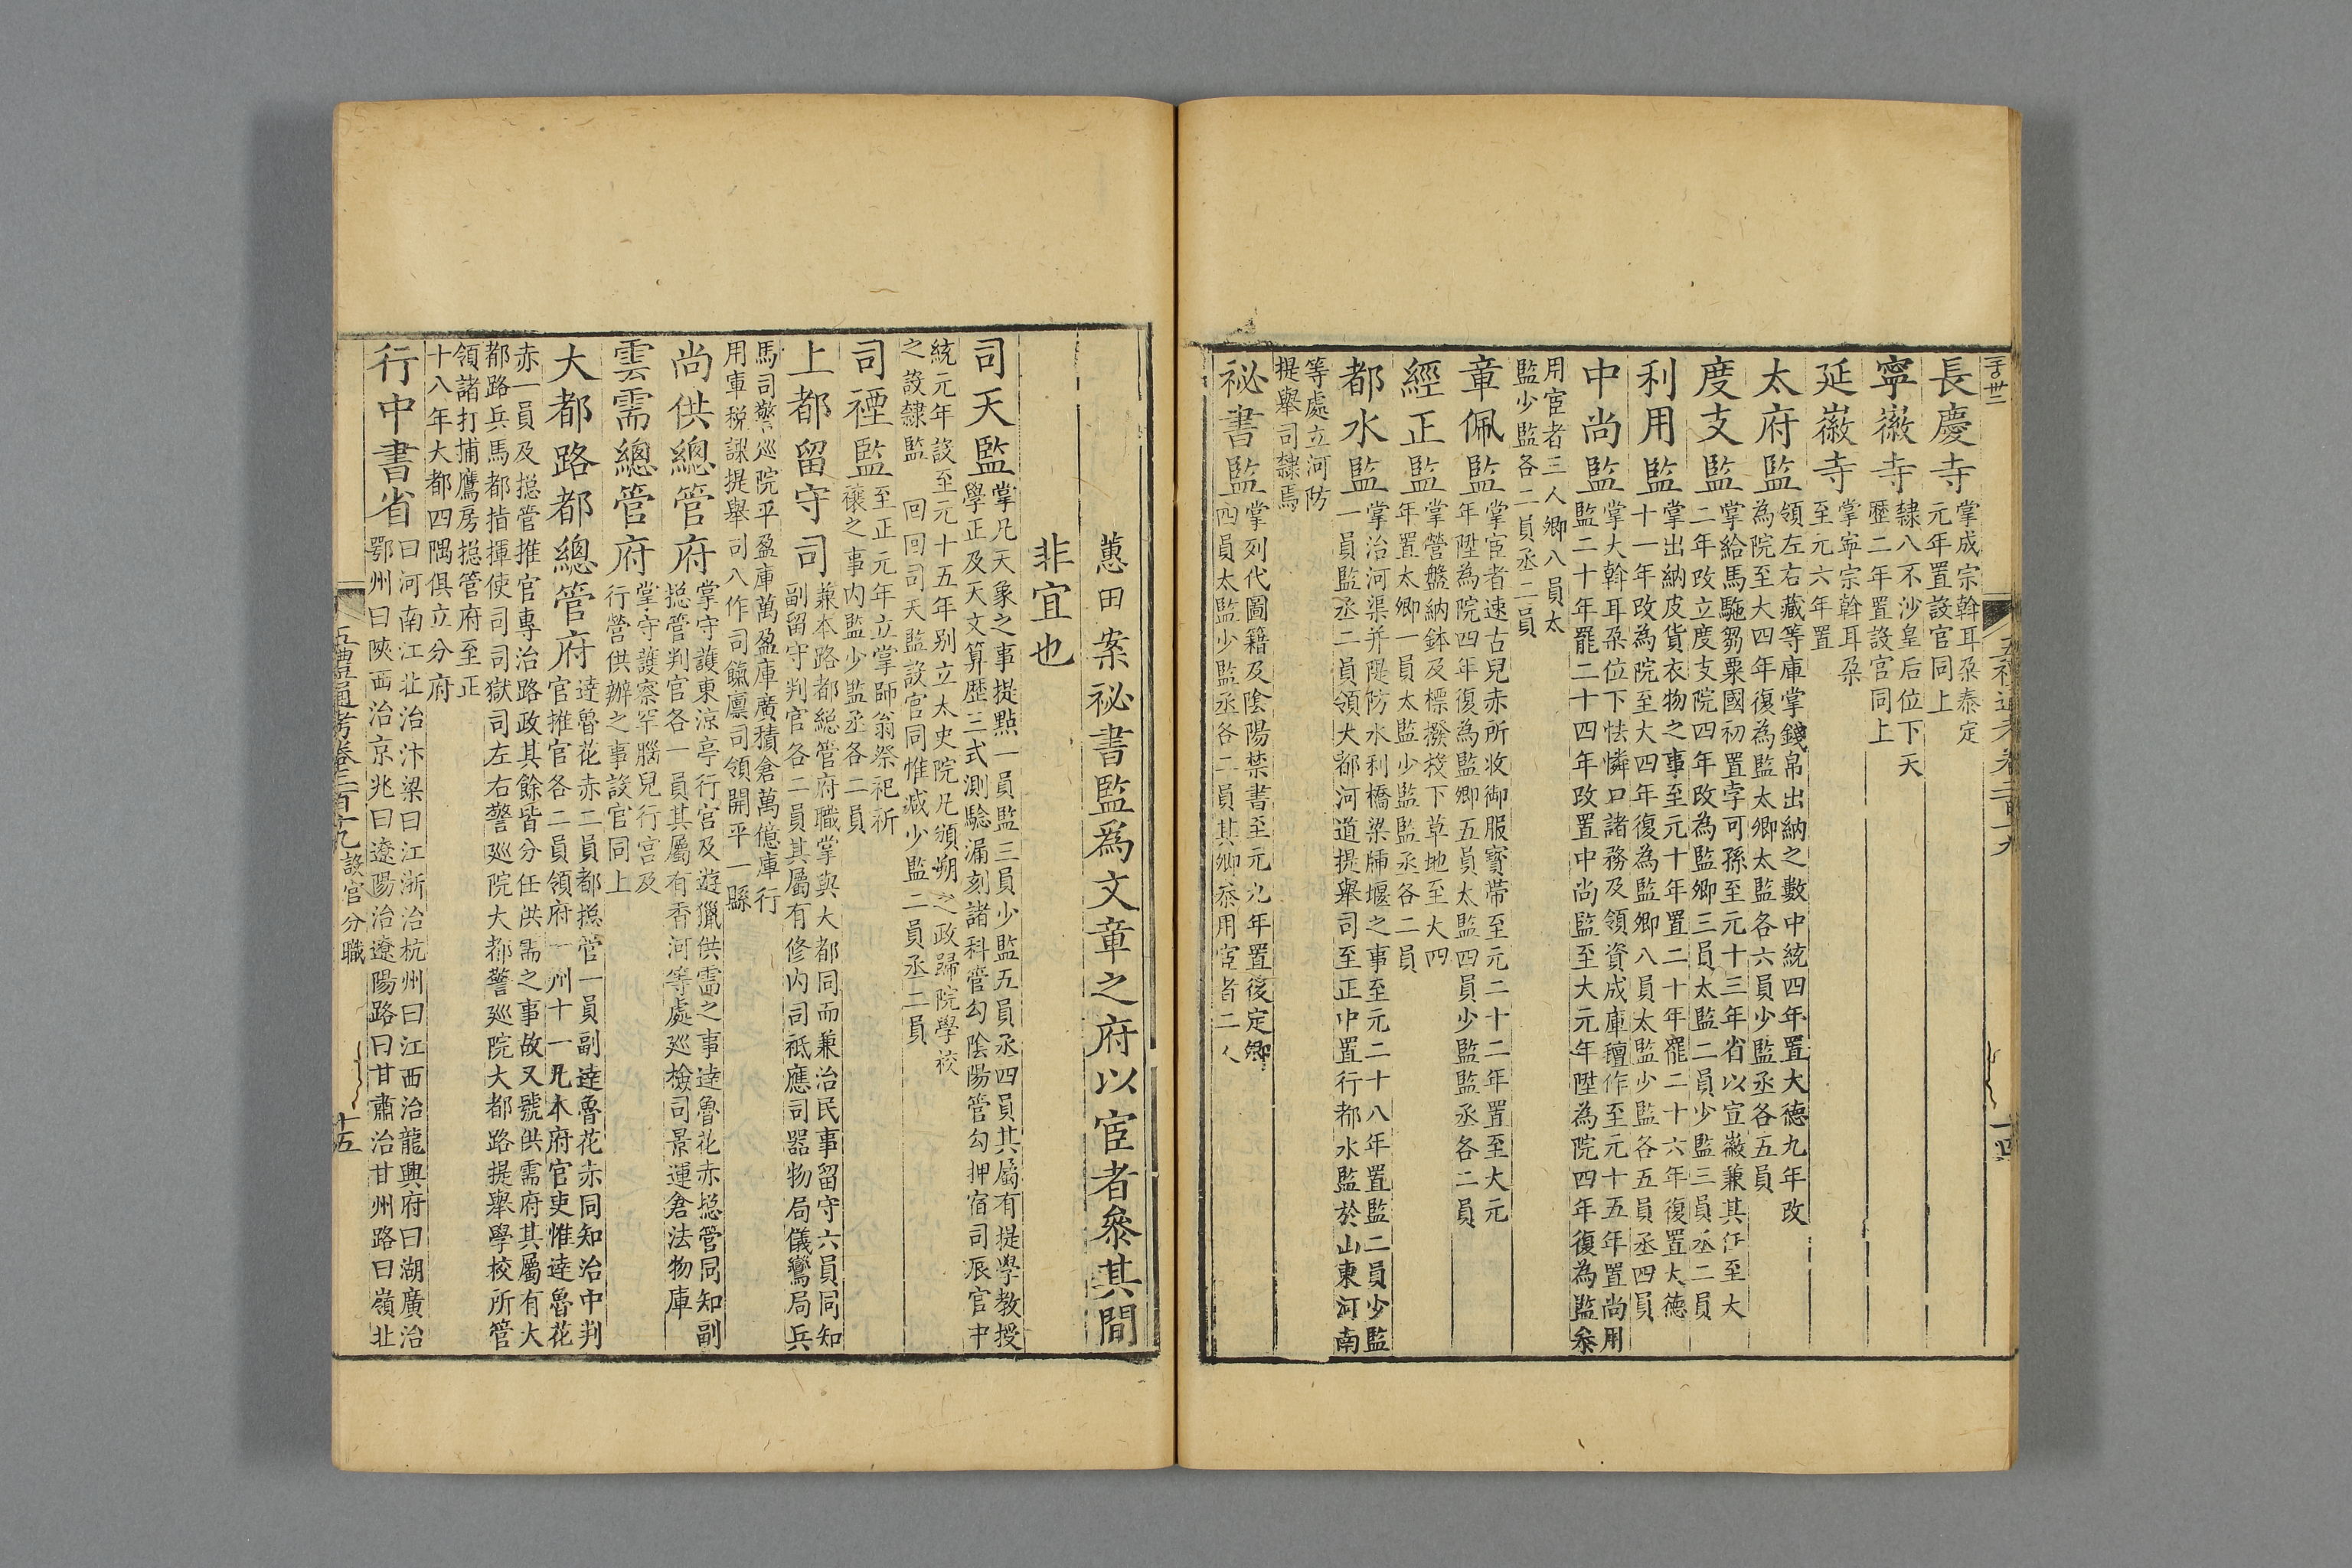 長慶寺掌成宗斡耳朶泰定
元年置設官同上
寧徽寺隸八不沙皇后位下天
歷二年置設官同上
延徽寺掌寧宗斡耳朶
至元六年置
太府監領左右藏等庫掌錢帛出納之數中統四年置大德九年改
為院至大四年復為監太卿太監各六員少監丞各五員
度支監掌給馬駞芻粟國初置孛可孫至元十三年省以宣徽兼其任至大
二年改立度支院四年改為監卿三員太監二員少監三員丞二員
利用監掌出納皮貨衣物之事至元十年置二十年罷二十六年復置大德
十一年改為院至大四年復為監卿八員太監少監各五員丞四員
中尚監掌大斡耳朶位下怯憐口諸務及領資成庫氊作至元十五年置尚用
監二十年罷二十四年改置中尚監至大元年陞為院四年復為監叅
用宦者三人卿八員太
監少監各二員丞二員
章佩監掌宦者速古兒赤所收御服寳帶至元二十二年置至大元
年陞為院四年復為監卿五員太監四員少監監丞各二員
經正監掌營盤納鉢及標撥投下草地至大四
年置太卿一員太監少監監丞各二員
都水監掌治河渠并隄防水利橋梁牐堰之事至元二十八年置監二員少監
一員監丞二員領大都河道提舉司至正中置行都水監於山東河南
等處立河防
提舉司隸焉
祕書監掌列代圖籍及陰陽禁書至元九年置後定卿
四員太監少監丞各二員其卿叅用宦者二人
五禮通考卷二百十九
十四
蕙田案祕書監爲文章之府以宦者叅其間
非宜也
司天監掌凡天象之事提點一員監三員少監五員丞四員其屬有提學教授
學正及天文算歷三式測驗漏刻諸科管勾陰陽管勾押宿司辰官中
統元年設至元十五年别立太史院凡頒朔之政歸院學校
之設隸監　回回司天監設官同惟减少監二員丞二員
司禋監至正元年立掌師翁祭祀祈
禳之事内監少監丞各二員
上都留守司兼本路都總管府職掌與大都同而兼治民事留守六員同知
副留守判官各二員其屬有修内司祗應司器物局儀鸞局兵
馬司警巡院平盈庫萬盈庫廣積倉萬億庫行
用庫税課提舉司八作司餼廪司領開平一縣
尚供總管府掌守護東涼亭行宫及遊獵供需之事逹魯花赤揔管同知副
揔管判官各一員其屬有香河等處廵檢司景運倉法物庫
雲需總管府掌守護察罕腦兒行宫及
行營供辦之事設官同上
大都路都總管府逹魯花赤二員都揔管一員副逹魯花赤同知治中判
官推官各二員領府一州十一凡本府官吏惟逹魯花
赤一員及揔管推官專治路政其餘皆分任供需之事故又號供需府其屬有大
都路兵馬都指揮使司司獄司左右警廵院大都警廵院大都路提舉學校所管
領諸打捕鷹房揔管府至正
十八年大都四隅俱立分府
行中書省曰河南江北治汴梁曰江浙治杭州曰江西治龍興府曰湖廣治
鄂州曰陜西治京兆曰遼陽治遼陽路曰甘肅治甘州路曰嶺北
五禮通考卷二百十九　設官分職
十五